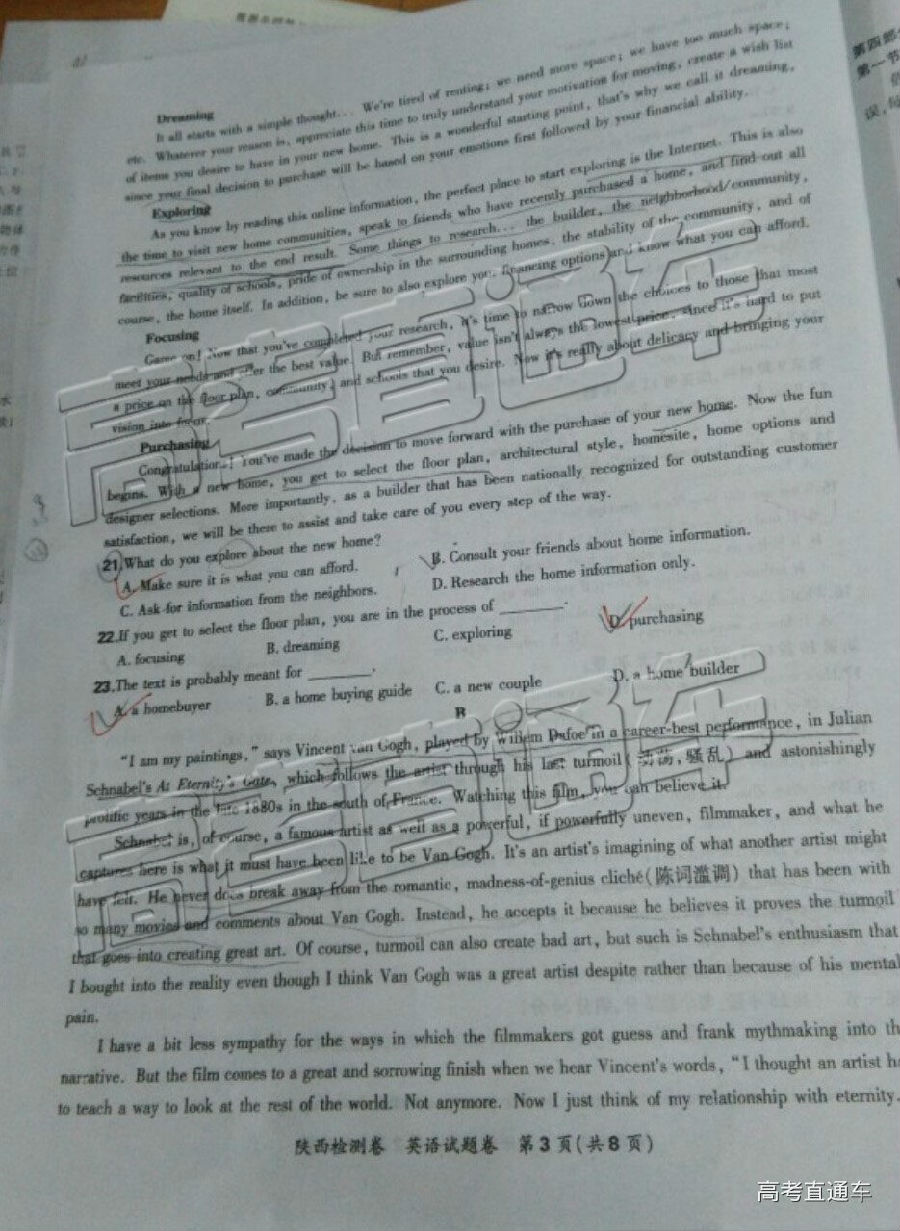 Dreaming
It all starts with a simple thought... We're tired of renting; we need more space; we have too much space;
etc. Whatever your reason is, appreciate this time to truly understand your motivation for moving, create a wish list
of items you desire to have in your new home. This is a wonderful starting point, that's why we call it dreaming,
since your final decision to purchase will be based on your emotions first followed by your financial ability.
Exploring
As you know by reading this online information, the perfect place to start exploring is the Internet. This is also
the time to visit new home communities, speak to friends who have recently purchased a home, and find out all
resources relevant to the end result. Some things to research... the builder, the neighborhood/community,
facilities, quality of schools, pride of ownership in the surrounding homes, the stability of the community, and of
course, the home itself. In addition, be sure to also explore your financing options and know what you can afford.
Focusing
Game on! Now that you've completed your research, it's time to narrow down the choices to those that most
meet your needs and offer the best value. But remember, value isn't always the lowest price, since it's hard to put
a price on the floor plan, community, and schools that you desire. Now it's really about delicacy and bringing your
vision into focus.
Purchasing
Congratulations! You've made the decision to move forward with the purchase of your new home. Now the fun
begins. With a new home, you get to select the floor plan, architectural style, homesite, home options and
designer selections. More importantly, as a builder that has been nationally recognized for outstanding customer
satisfaction, we will be there to assist and take care of you every step of the way.
21.What do you explore about the new home?
A. Make sure it is what you can afford. B. Consult your friends about home information.
C. Ask for information from the neighbors. D. Research the home information only.
22.If you get to select the floor plan, you are in the process of ________.
A. focusing B. dreaming C. exploring D. purchasing
23.The text is probably meant for ________.
A. a homebuyer B. a home buying guide C. a new couple D. a home builder
B
"I am my paintings," says Vincent van Gogh, played by Willem Dafoe in a career-best performance, in Julian
Schnabel's At Eternity's Gate, which follows the artist through his last turmoil(动荡,骚乱) and astonishingly
prolific years in the late 1880s in the south of France. Watching this film, you can believe it.
Schnabel is, of course, a famous artist as well as a powerful, if powerfully uneven, filmmaker, and what he
captures here is what it must have been like to be Van Gogh. It's an artist's imagining of what another artist might
have felt. He never does break away from the romantic, madness-of-genius cliché(陈词滥调) that has been with
so many movies and comments about Van Gogh. Instead, he accepts it because he believes it proves the turmoil
that goes into creating great art. Of course, turmoil can also create bad art, but such is Schnabel's enthusiasm that
I bought into the reality even though I think Van Gogh was a great artist despite rather than because of his mental
pain.
I have a bit less sympathy for the ways in which the filmmakers got guess and frank mythmaking into th
narrative. But the film comes to a great and sorrowing finish when we hear Vincent's words, "I thought an artist ha
to teach a way to look at the rest of the world. Not anymore. Now I just think of my relationship with eternity.
陕西检测卷 英语试题卷 第3页(共8页)
第四部分
第一节
高考直通车
高考直通车
高考直通车